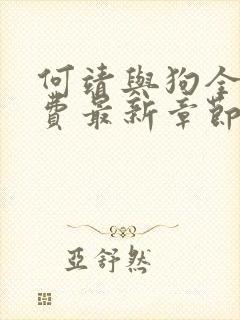 何靖與狗全
費最新章節
亞舒然